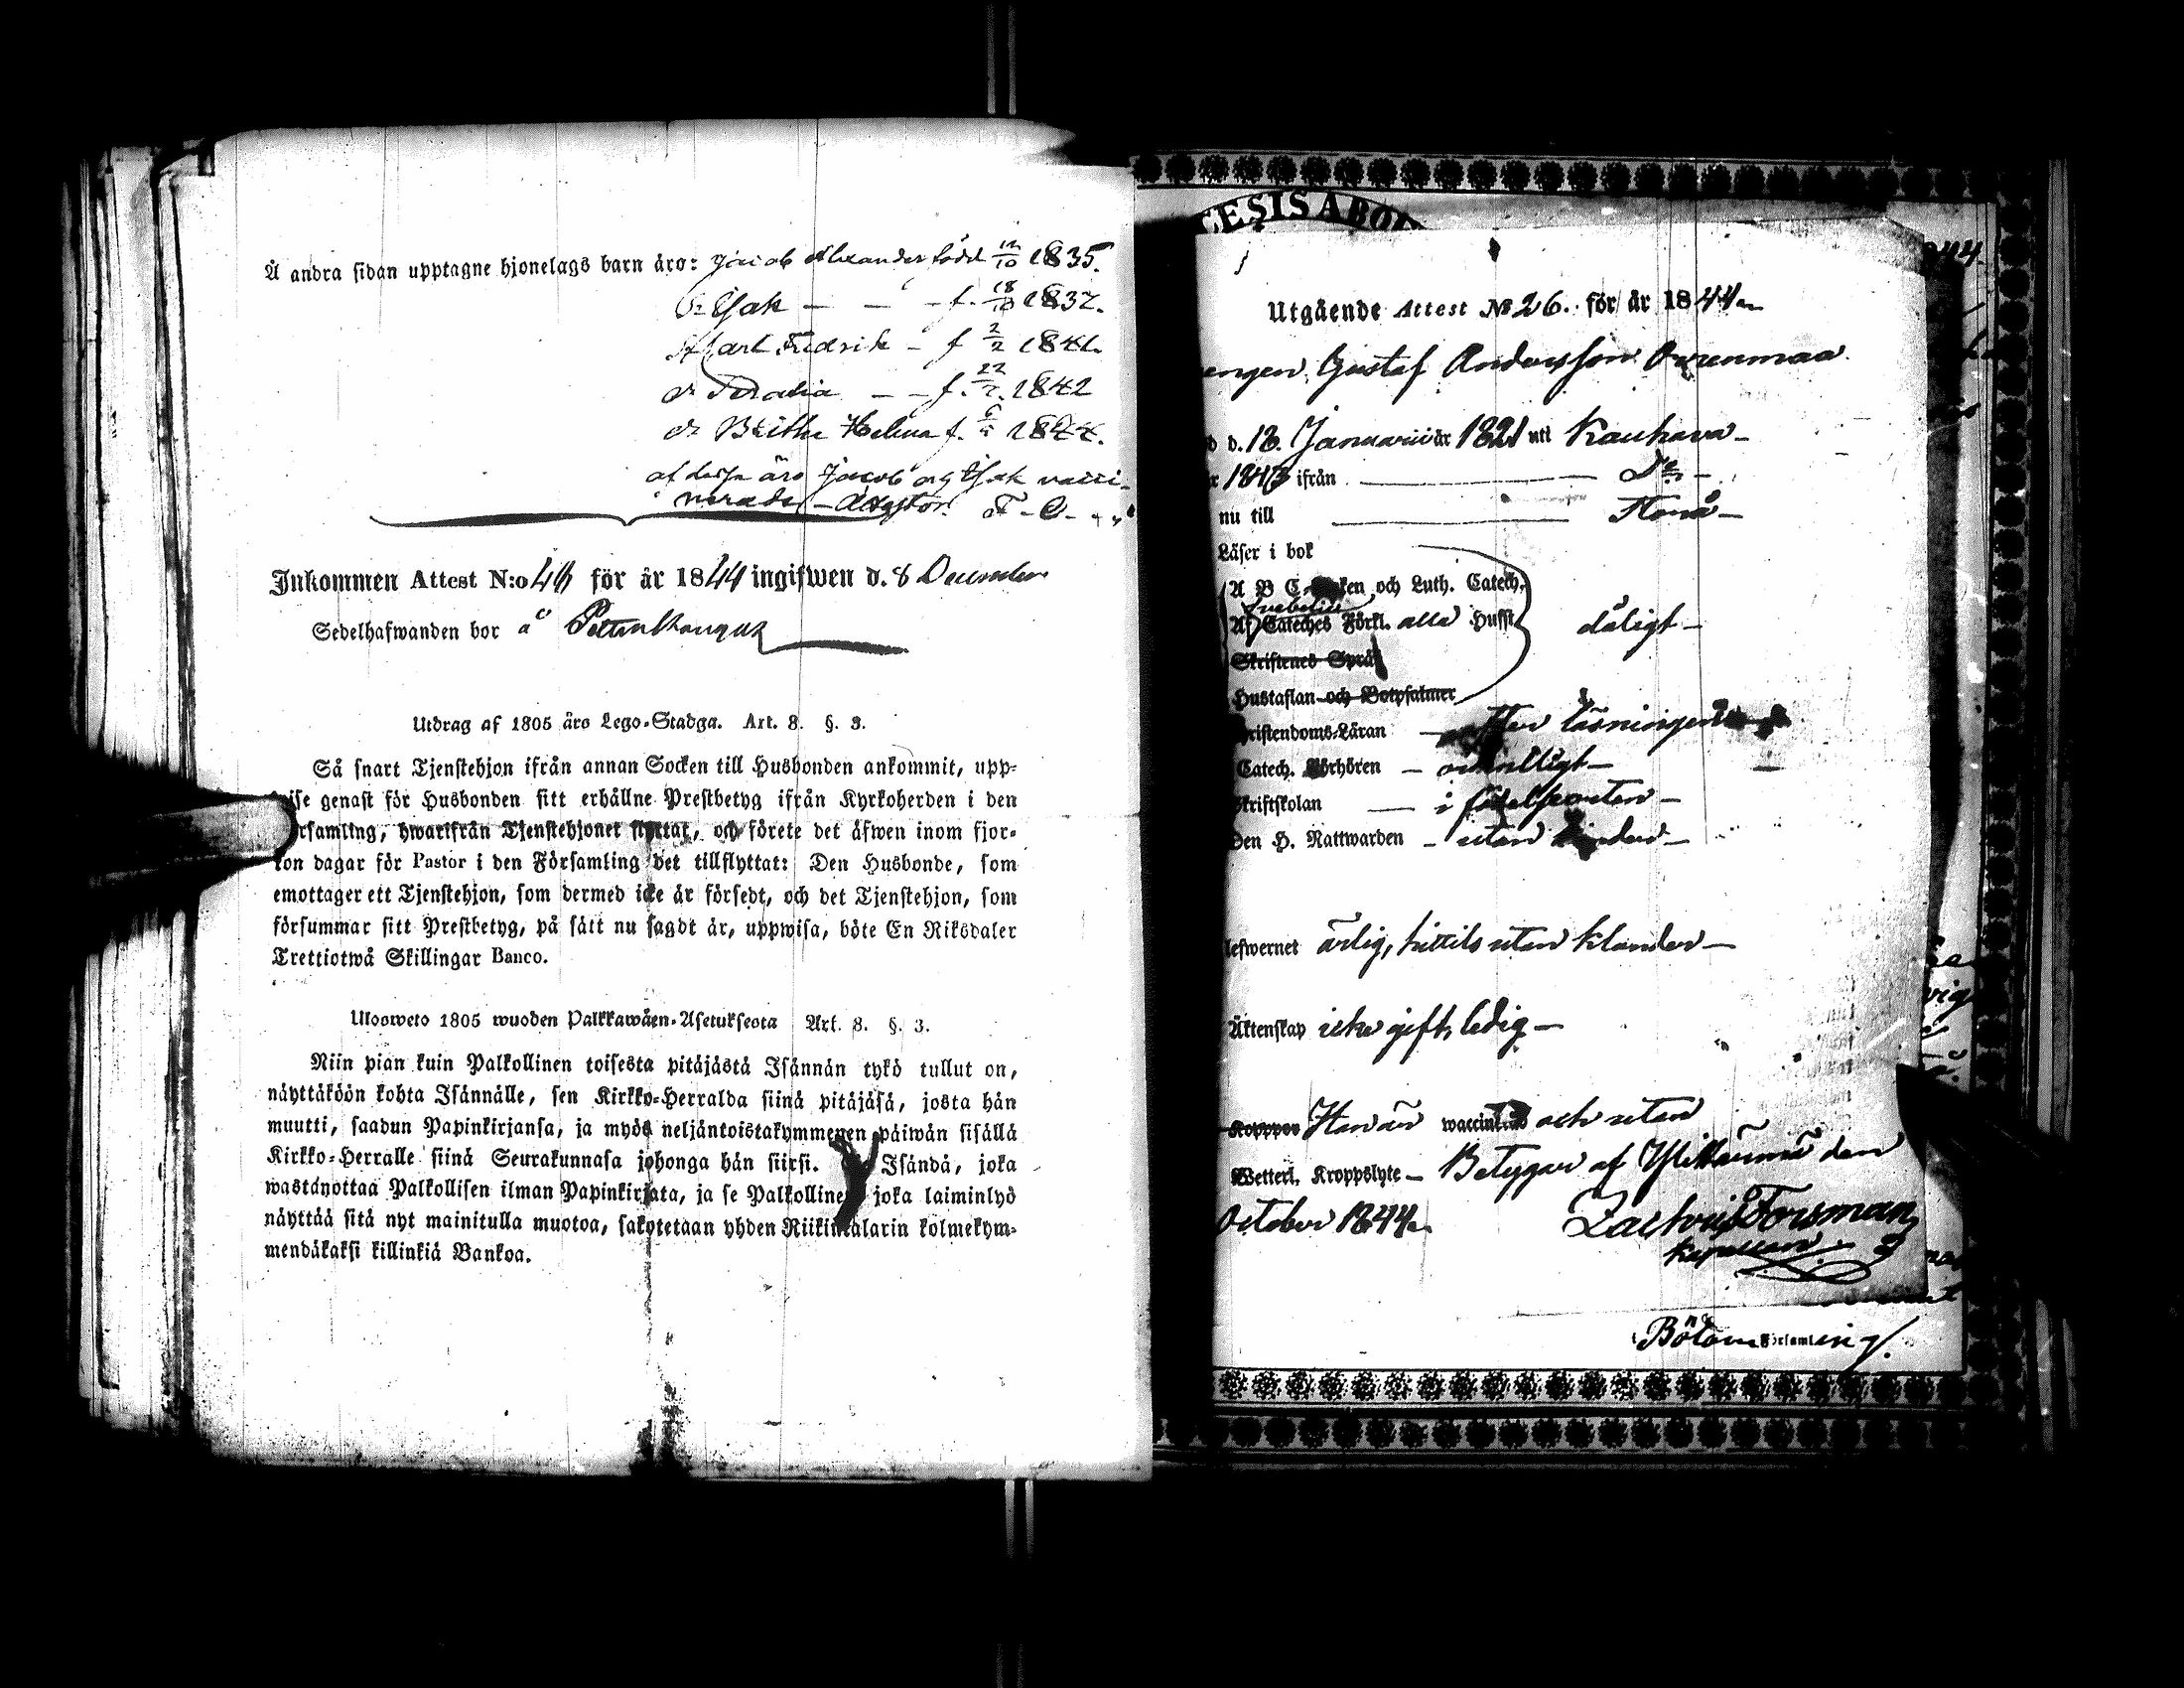 Å andra sidan upptagne hjonelags barn äro: Jacob Alexander född 12/10 1835.
Isak — — f. 18/8 1837.
Carl Fredrik — f 2/2 1841.
— — f. 22/7. 1842
Britha Helena f. 1844.
af dessa äro Jacob och Isak vacci-
nerade —
Inkommen Attest N:o för år 1844 ingifwen d. 8 December
Sedelhafwanden bor å
Utdrag af 1805 åro Lego-Stadga. Art. 8. §. 3.
Så snart Tjenstehjon ifrån annan Socken till Husbonden ankommit, upp-
wise genast för Husbonden sitt erhållne Prestbetyg ifrån Kyrkoherden i den
Församling, hwarifrån Tjenstehjonet flyttat, och förete det äfwen inom fjor-
ton dagar för Pastor i den Församling det tillflyttat: Den Husbonde, som
emottager ett Tjenstehjon, som dermed icke är försedt, och det Tjenstehjon, som
försummar sitt Prestbetyg, på sätt nu sagdt är, uppwisa, böte En Riksdaler
Trettiotwå Skillingar Banco.
Ulosweto 1805 wuoden Palkkawäen-Asetuksesta Art. 8. §. 3.
Niin pian kuin Palkollinen toisesta pitäjästä Isännän tykö tullut on,
näyttäköön kohta Isännälle, sen Kirkko-Herralda siinä pitäjäsä, josta hän
muutti, saadun Papinkirjansa, ja myös neljäntoistakymmenen päiwän sisällä
Kirkko-Herralle siinä Seurakunnasa johonga hän siirsi. Isändä, joka
wastanottaa Palkollisen ilman Papinkirjata, ja se Palkollinen joka laiminlyö
näyttää sitä nyt mainitulla muotoa, sakotetaan yhden Riikintalarin kolmekym-
mendäkaksi killinkiä Bankoa.
CESIS ABO
Utgående Attest № 26. för år 1844
Gustaf Andersson
d. 18. Januarii år 1821 uti Kauhava —
1843 ifrån — Do —
nu till —
Läser i bok
A B C och Luth. Catech.
Af Svebelii Cateches Förkl. alla Hufst. dåligt —
Skriftenes Språk
Hustaflan och Botpsalmer
Christendoms-Läran — efter läsningen
Catech. Förhören —
Skriftskolan — i
Den H. Nattwarden — utan hinder —
lefwernet ärlig, hittils utan klander —
Äktenskap icke gift, ledig —
Kroppes Han är waccinerad och utan
Wetterl. Kroppslyte — Betygar af Ylihärmä den
October 1844.
Zachris Forsman
Kapellan
Församling.